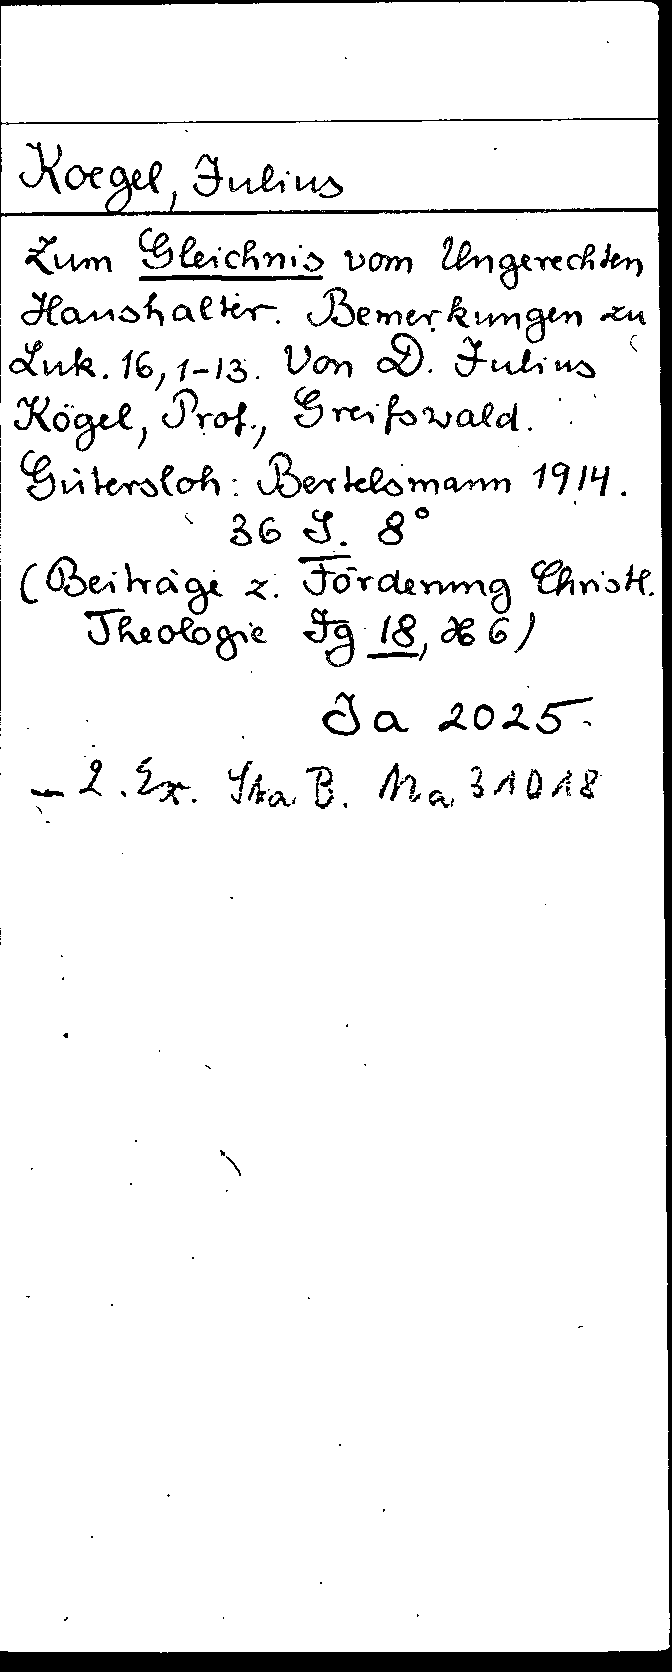 Koegel, Julius
Zum Gleichnis vom Ungerechten
Haushalter. Bemerkungen zu
Luk. 16, 1-13. Von D. Julius
Kögel, Prof., Greifswald.
Gütersloh: Bertelsmann 1914.
36 S. 8°
(Beiträge z. Förderung Christl.
Theologie Jg 18, H 6)
Ja 2025.
- 2. Ex. Sta B. Na 31018